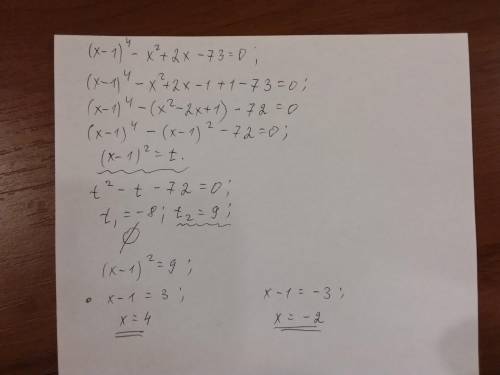 (x-1)⁴ - x² + 2x - 73 = 0 ;
(x-1)⁴ - x² + 2x - 1 + 1 - 73 = 0 ;
(x-1)⁴ - (x² - 2x + 1) - 72 = 0
(x-1)⁴ - (x-1)² - 72 = 0 ;
(x-1)² = t.
t² - t - 72 = 0 ;
t₁ = -8 ; t₂ = 9 ;
∅
(x-1)² = 9 ;
• x-1 = 3 ; x-1 = -3 ;
x = 4 x = -2